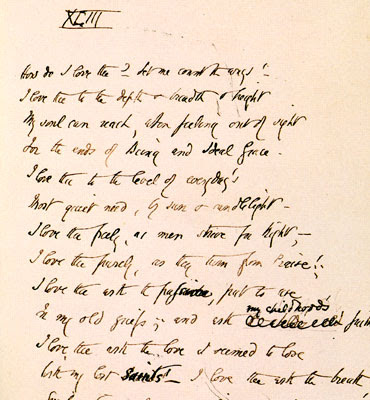 XLIII
How do I love thee? Let me count the ways!–
I love thee to the depth & breadth & height
My soul can reach, when feeling out of sight
For the ends of Being and Ideal Grace.
I love thee to the level of everyday's
Most quiet need, by sun & candlelight–
I love thee freely, as men strive for Right,–
I love thee purely, as they turn from Praise!;
I love thee with the passion, put to use
In my old griefs,; and with my childhood's faith
I love thee with the love I seemed to lose
With my lost Saints!– I love thee with the breath